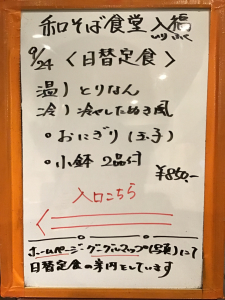 和そば食堂 入福
9/24 〈日替定食〉
温) とりなん
冷) 冷やしたぬき風
・おにぎり(玉子)
・小鉢 2品付
¥850,-
入口こちら
ホームページ グーグルマップ(写真)にて
日替定食の案内をしています